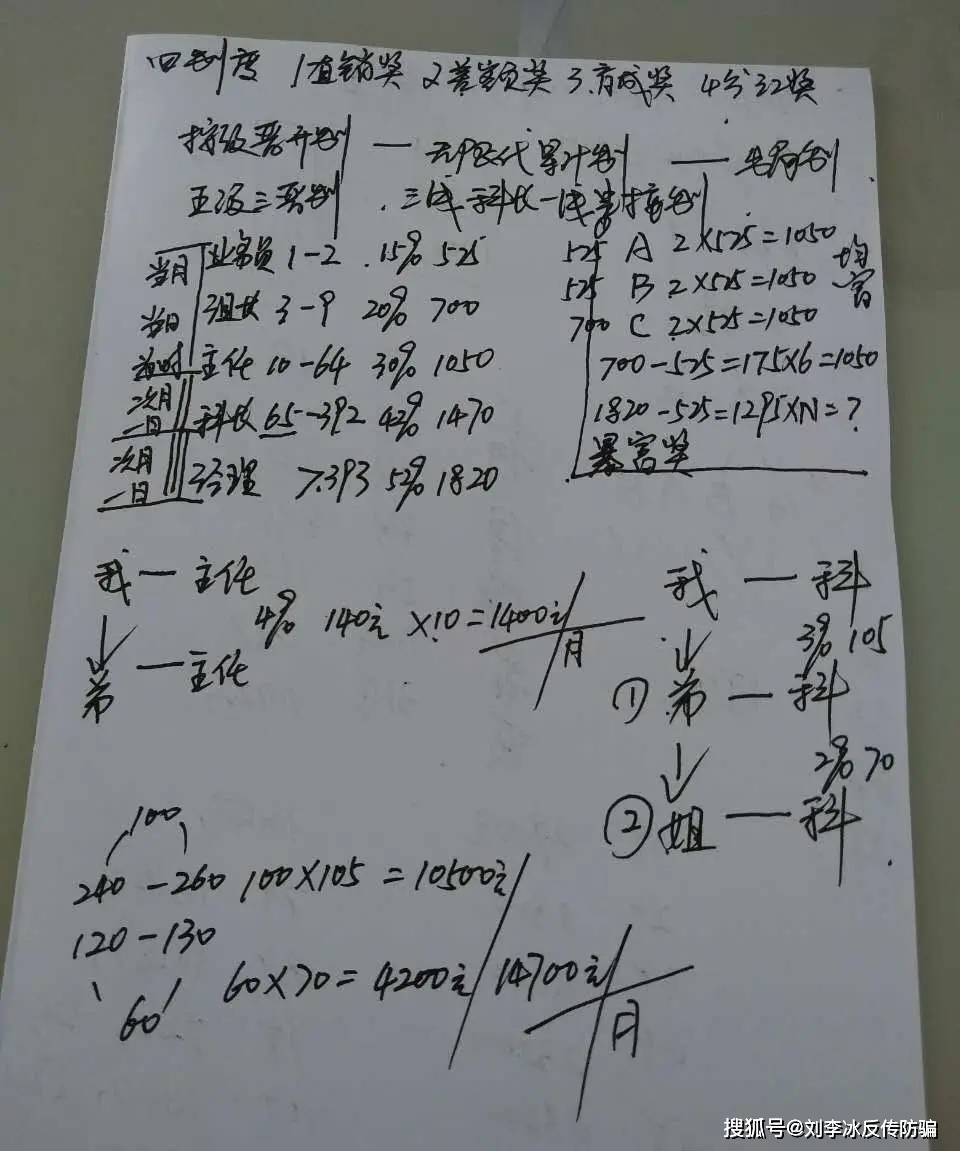 四制度 1直销奖 2差额奖 3.育成奖 4分红奖
按级晋升制 — 无限代累计制 — 出局制
五级三晋制 . 三线科长一线 制
当月 业务员 1-2 .15% 525
当日 组长 3-9 20% 700
当时 主任 10-64 30% 1050
次月一日 科长 65-392 42% 1470
次月一日 经理 >.393 52% 1820
525 A 2×525=1050 均富
525 B 2×525=1050
700 C 2×525=1050
700-525=175×6=1050
1820-525=1295×N=?
暴富奖
我 — 主任
4% 140元 ×10=1400元/月
弟 — 主任
我 — 科
3% 105
① 弟 — 科
2% 70
② 姐 — 科
100
240-260 100×105=10500元
120-130
60 60×70=4200元 14700元/月
搜狐号@刘李冰反传防骗